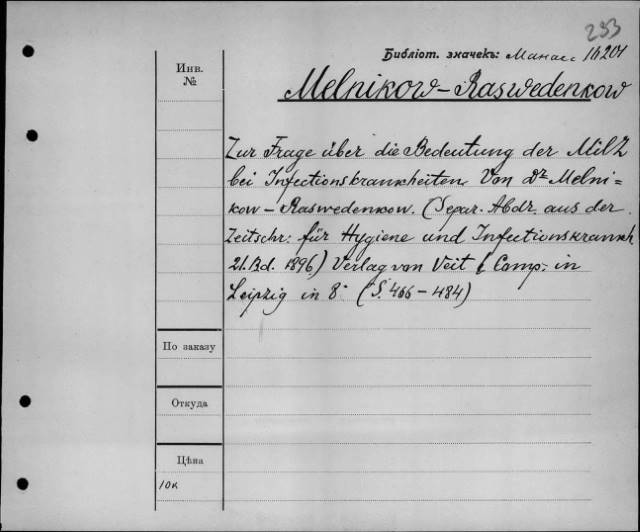 233
Библіот. значекъ: Манас. 16201
Инв.
№
Melnikow-Raswedenkow
Zur Frage über die Bedeutung der Milz
bei Infectionskrankheiten. Von Dr. Melni-
kow-Raswedenkow. (Separ. Abdr. aus der
Zeitschr: für Hygiene und Infectionskrankh
21. Bd. 1896) Verlag von Veit & Comp. in
Leipzig in 8° (S. 466-484)
По заказу
Откуда
Цѣна
10к